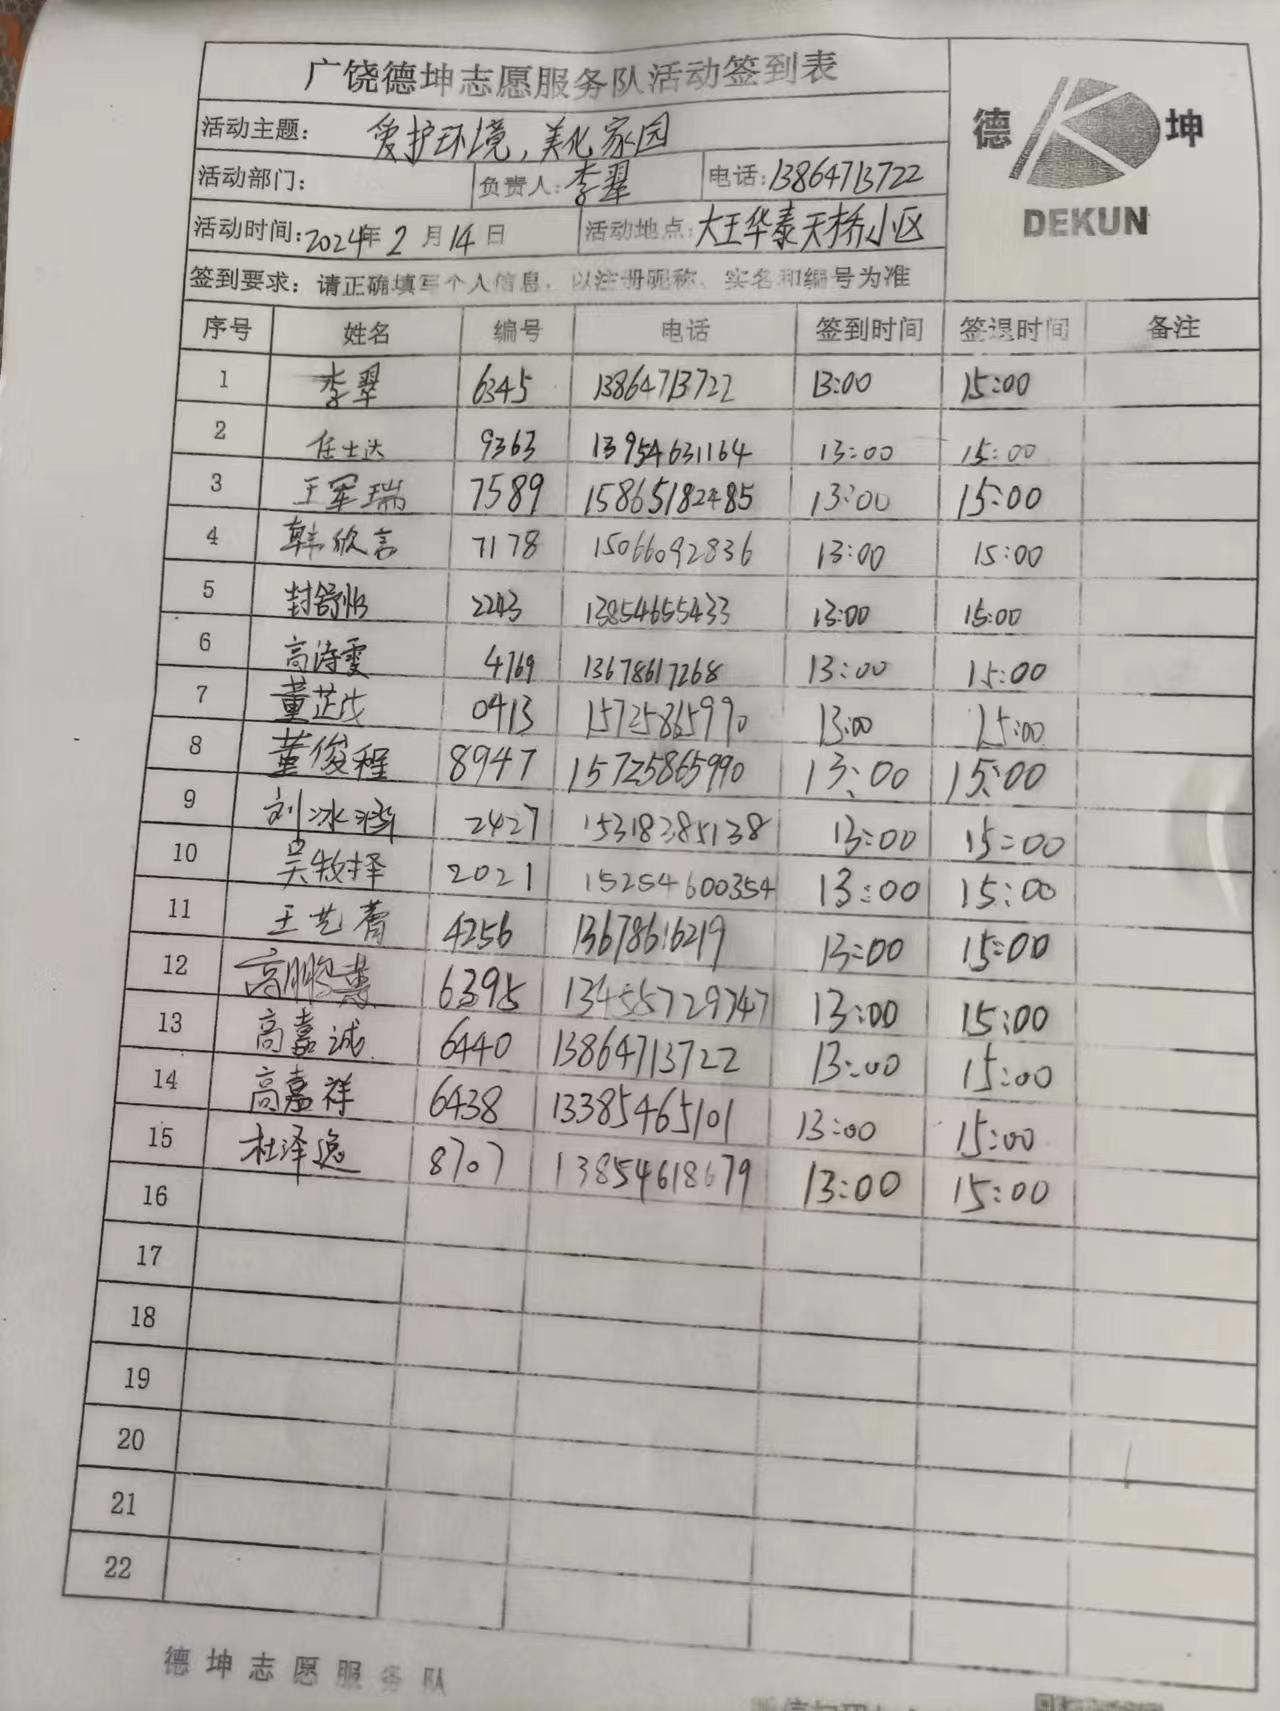 广饶德坤志愿服务队活动签到表
德 坤
DEKUN
活动主题: 爱护环境,美化家园
活动部门: 负责人:李翠 电话:13864713722
活动时间:2024年2月14日 活动地点:大王华泰天桥小区
签到要求: 请正确填写个人信息,以注册昵称、实名和编号为准
序号 姓名 编号 电话 签到时间 签退时间 备注
1 李翠 6345 13864713722 13:00 15:00
2 任士达 9363 13954631164 13:00 15:00
3 王军瑞 7589 15865182485 13:00 15:00
4 韩欣言 7178 15066092836 13:00 15:00
5 封舒怡 2243 13854655433 13:00 15:00
6 高诗雯 4769 13678617268 13:00 15:00
7 董芷 0413 15725865990 13:00 15:00
8 董俊程 8947 15725865990 13:00 15:00
9 刘冰 2427 15318285138 13:00 15:00
10 吴牧择 2021 15254600354 13:00 15:00
11 王艺 4256 13678616219 13:00 15:00
12 高鹏 6395 13455729747 13:00 15:00
13 高嘉诚 6440 13864713722 13:00 15:00
14 高嘉祥 6438 13385465101 13:00 15:00
15 杜泽逸 8707 13854618679 13:00 15:00
16
17
18
19
20
21
22
德坤志愿服务队